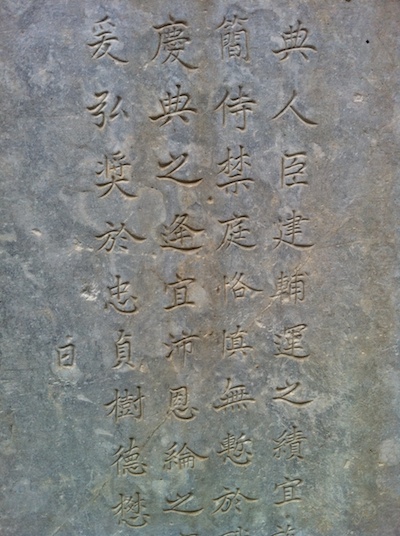 典人臣建輔運之績宜
簡侍禁庭恪慎無愆於
慶典之逢宜沛恩綸之
爰弘奬於忠貞樹德懋
曰